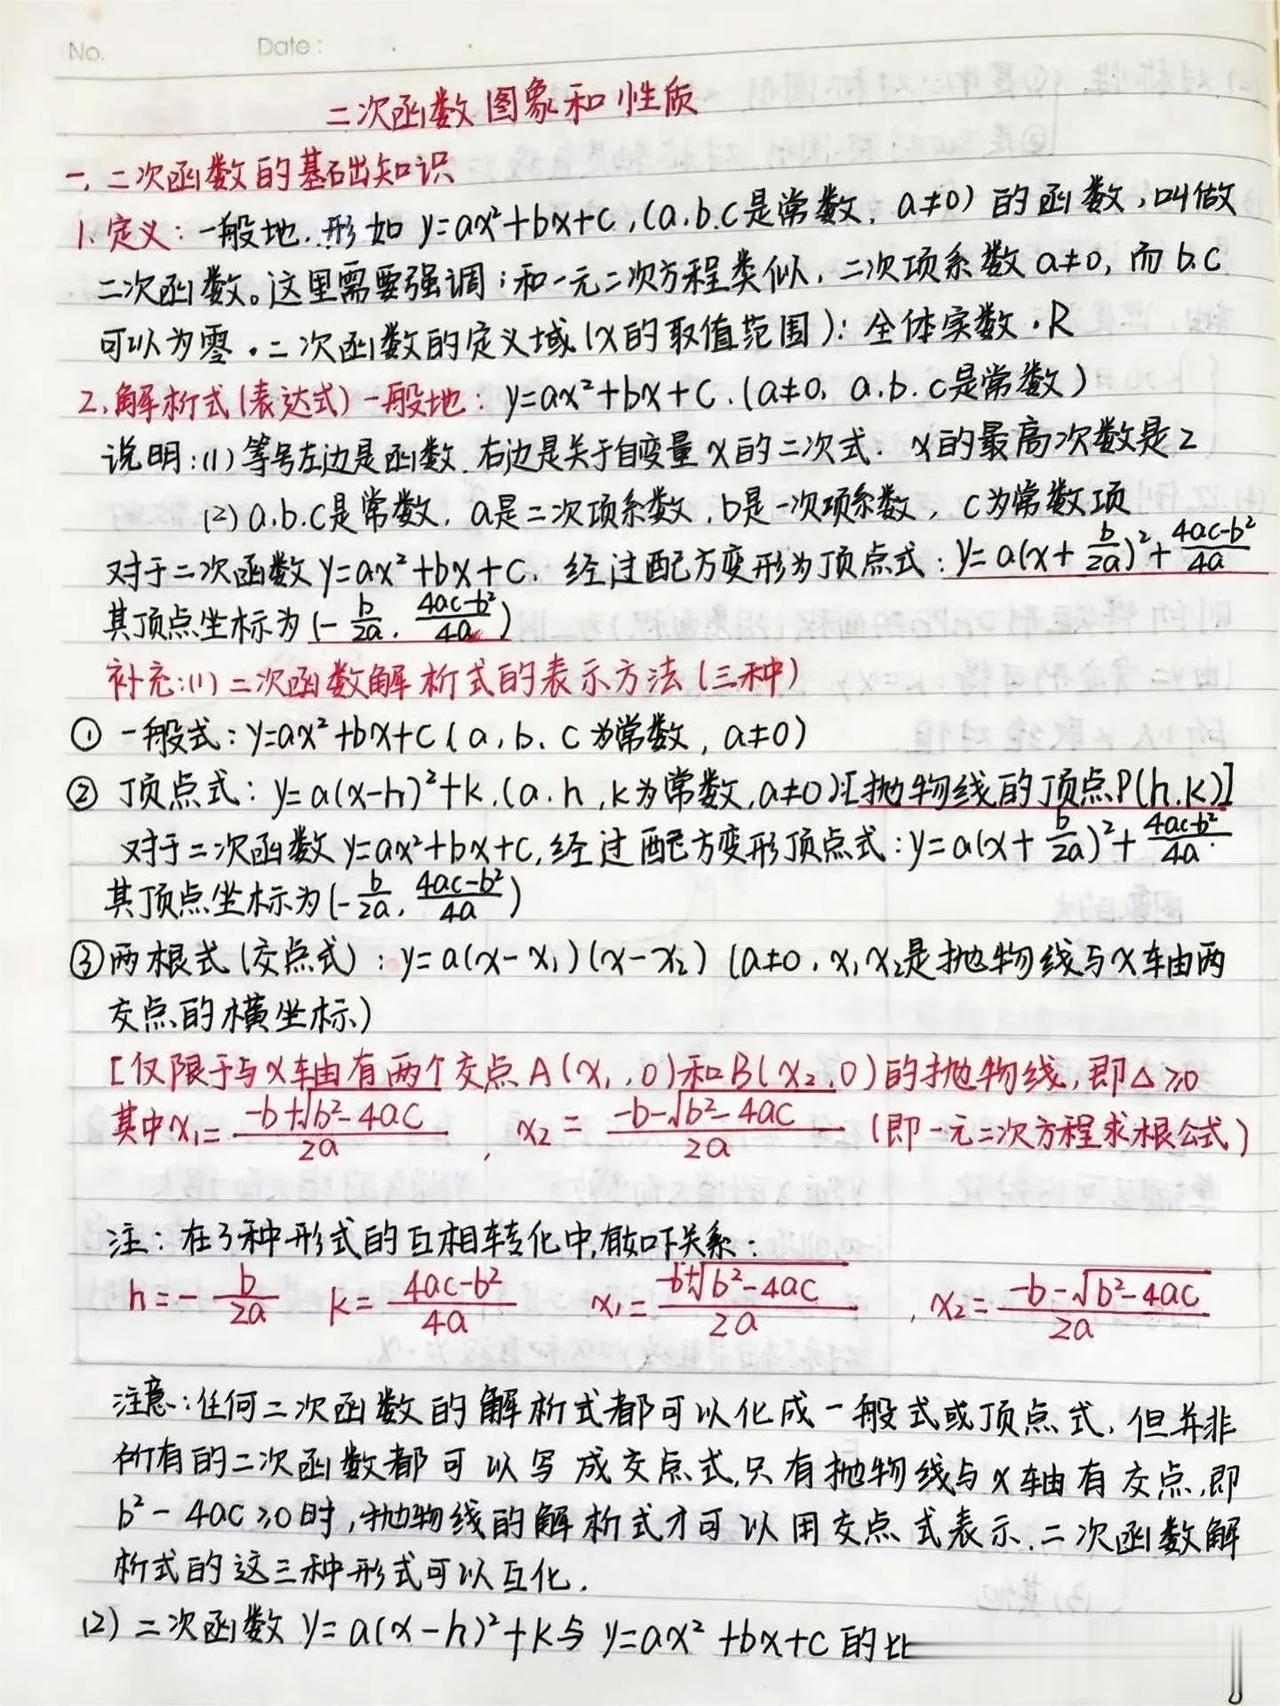 No.
Date:
二次函数图象和性质
一、二次函数的基础知识
1.定义:一般地,形如 y=ax²+bx+c,(a.b.c是常数,a≠0)的函数,叫做
二次函数。这里需要强调:和一元二次方程类似,二次项系数a≠0,而b.c
可以为零.二次函数的定义域(x的取值范围):全体实数.R
2.解析式(表达式)一般地:y=ax²+bx+c.(a≠0, a.b.c是常数)
说明:(1)等号左边是函数.右边是关于自变量x的二次式.x的最高次数是2
(2)a.b.c是常数,a是二次项系数,b是一次项系数,c为常数项
对于二次函数y=ax²+bx+c,经过配方变形为顶点式:y=a(x+b/2a)²+(4ac-b²)/4a
其顶点坐标为(-b/2a, (4ac-b²)/4a)
补充:(1)二次函数解析式的表示方法(三种)
① 一般式:y=ax²+bx+c(a,b、c为常数,a≠0)
② 顶点式:y=a(x-h)²+k,(a.h,k为常数,a≠0)[抛物线的顶点P(h.k)]
对于二次函数y=ax²+bx+c,经过配方变形顶点式:y=a(x+b/2a)²+(4ac-b²)/4a.
其顶点坐标为(-b/2a, (4ac-b²)/4a)
③两根式(交点式):y=a(x-x₁)(x-x₂)(a≠0,x₁x₂是抛物线与x轴两
交点的横坐标)
[仅限于与x轴有两个交点A(x₁,0)和B(x₂,0)的抛物线,即△≥0
其中x₁=(-b+√b²-4ac)/2a, x₂=(-b-√b²-4ac)/2a (即一元二次方程求根公式)
注:在3种形式的互相转化中,有如下关系:
h=-b/2a k=(4ac-b²)/4a x₁=(-b+√b²-4ac)/2a , x₂=(-b-√b²-4ac)/2a
注意:任何二次函数的解析式都可以化成一般式或顶点式,但并非
所有的二次函数都可以写成交点式,只有抛物线与x轴有交点,即
b²-4ac≥0时,抛物线的解析式才可以用交点式表示.二次函数解
析式的这三种形式可以互化.
(2)二次函数 y=a(x-h)²+k与 y=ax²+bx+c的比